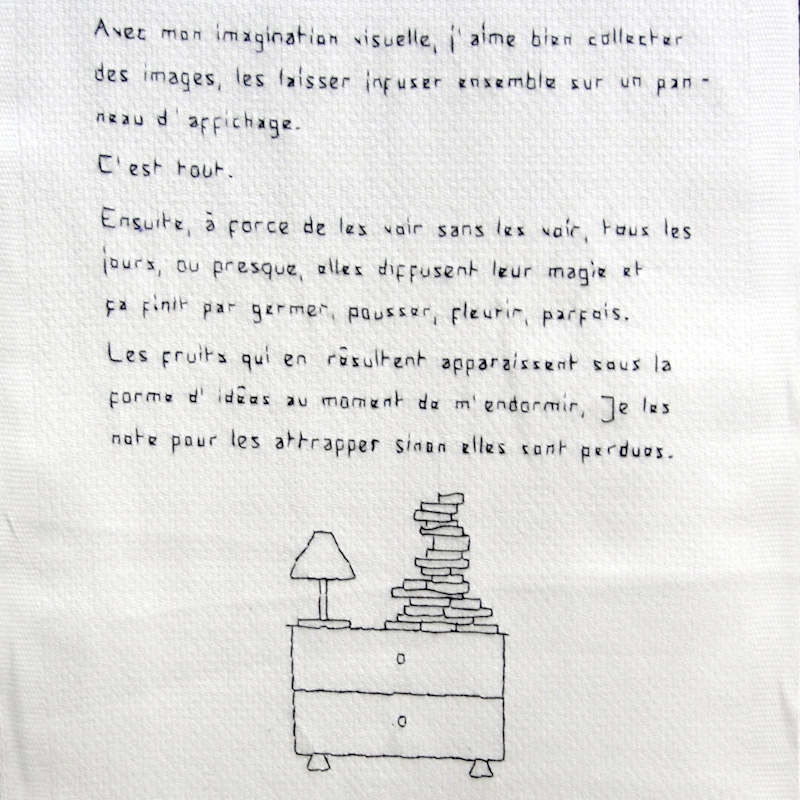 Avec mon imagination visuelle, j'aime bien collecter
des images, les laisser infuser ensemble sur un pan-
neau d'affichage.
C'est tout.
Ensuite, à force de les voir sans les voir, tous les
jours, ou presque, elles diffusent leur magie et
ça finit par germer, pousser, fleurir, parfois.
Les fruits qui en résultent apparaissent sous la
forme d'idées au moment de m'endormir, Je les
note pour les attrapper sinon elles sont perdues.